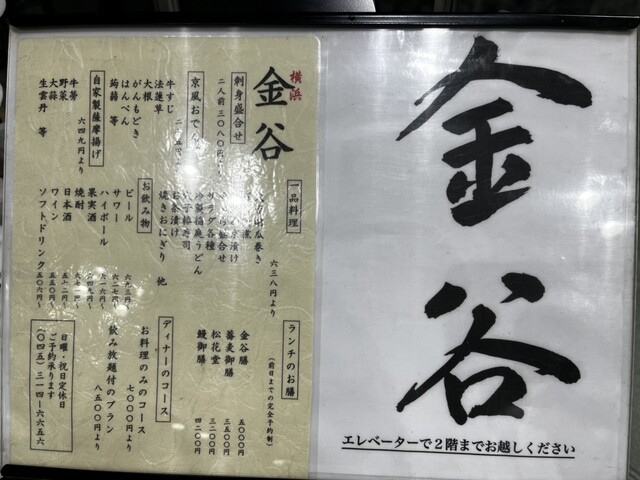 金谷
エレベーターで２階までお越しください
横浜
金谷
刺身盛合せ
二人前 三〇八〇円より
京風おでん
牛すじ
法蓮草
大根
がんもどき
はんぺん
蒟蒻 等
自家製薩摩揚げ
六四九円より
牛蒡
野菜
大蒜
生雲丹 等
一品料理
六三八円より
サラダ各種
冷製稲庭うどん
焼きおにぎり 他
お飲み物
ビール
サワー
ハイボール
果実酒
焼酎
日本酒
ワイン
ソフトドリンク
五〇六円〜
ランチのお膳
(前日までの完全予約制)
金谷膳 五〇〇〇円
蕎麦御膳 三五〇〇円
松花堂 三二〇〇円
鰻御膳 四二〇〇円
ディナーのコース
お料理のみのコース
七〇〇〇円より
飲み放題付のプラン
八五〇〇円より
日曜・祝日定休日
ご予約承ります
(〇四五)三一四-六六五六